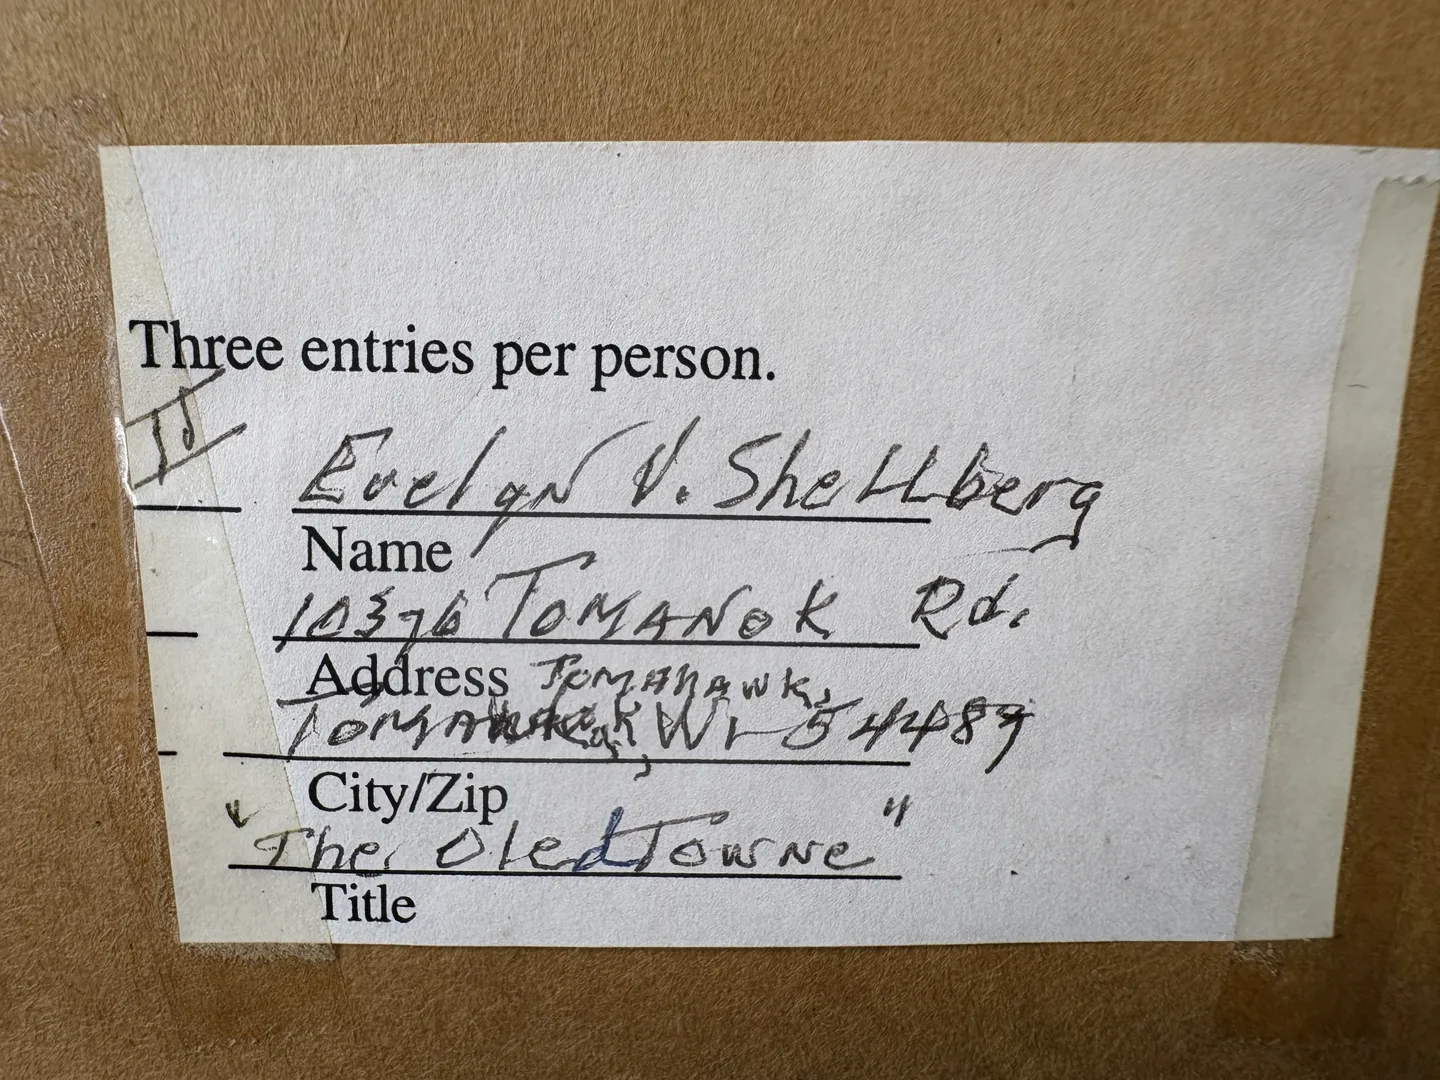 Three entries per person.
II Evelyn V. Shellberg
Name
10376 TOMANOK Rd.
Address TOMAHAWK,
WI 54489
City/Zip
"The Oled Towne"
Title